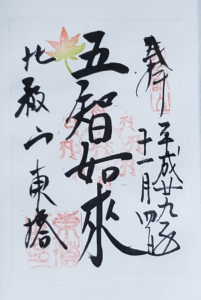 奉拝
平成廿九年
十一月四日
五智如來
比叡山東塔